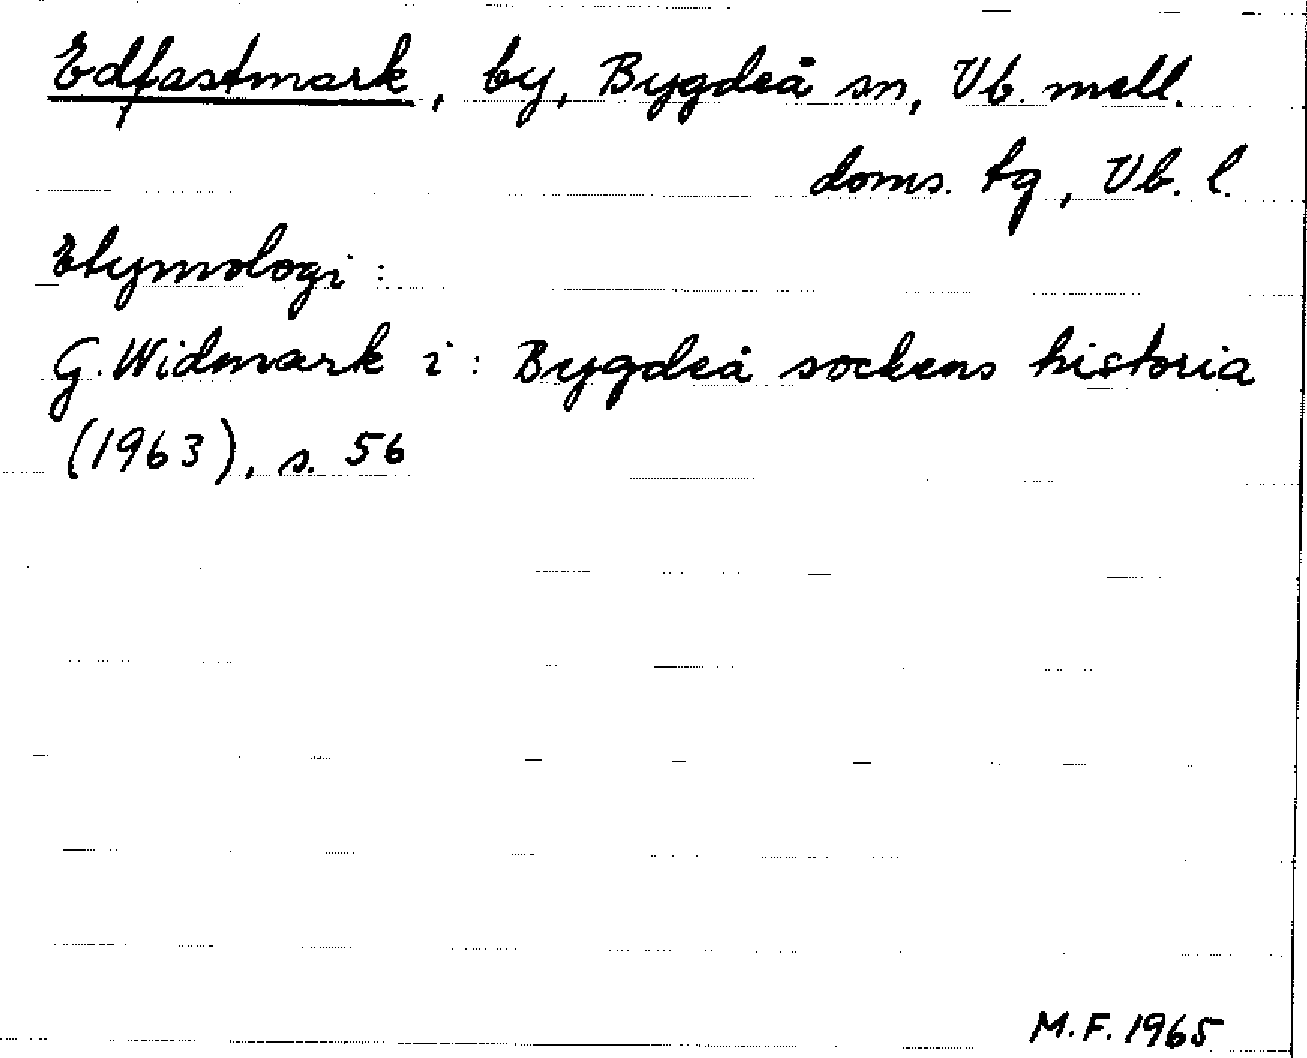 Edfastmark, by, Bygdeå sn, Vb. mell.
doms. tg, Vb. l.
Etymologi:
G. Widmark i: Bygdeå sockens historia
(1963), s. 56
M.F. 1965